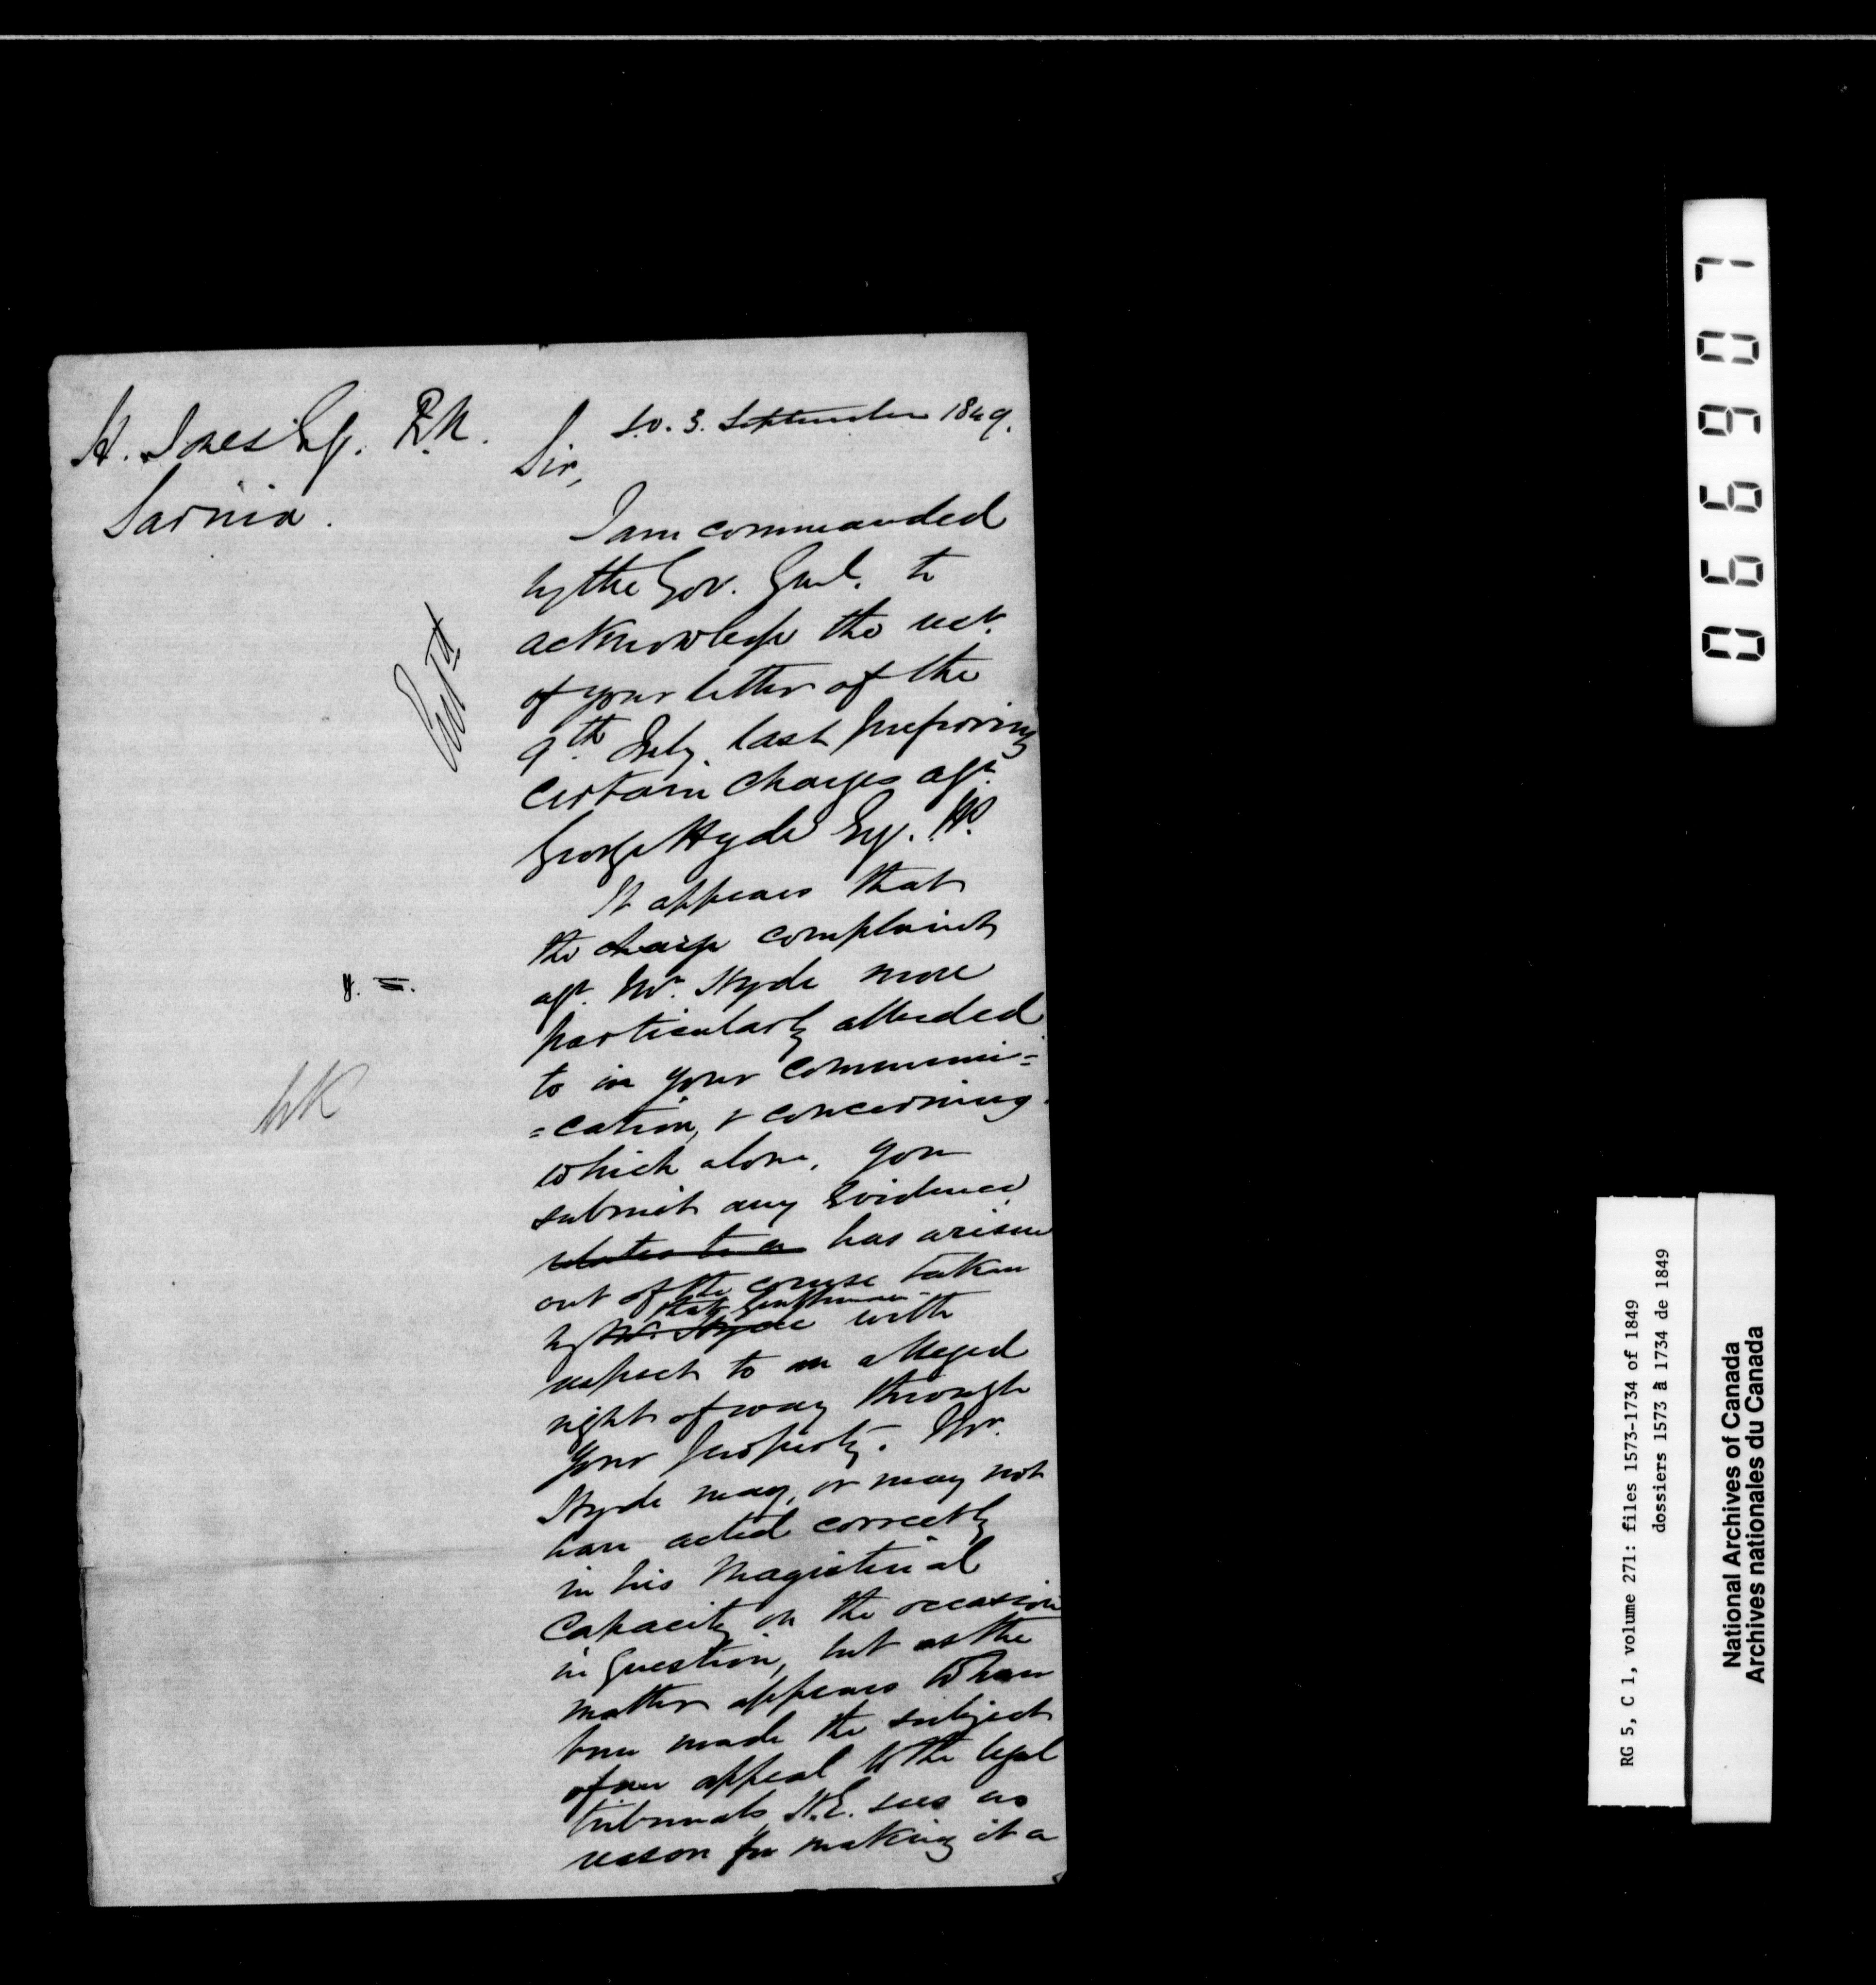 H. Jones Esq. P.M.
Sarnia.
S.O. 3. September 1849.
Sir,
I am commanded
by the Gov. Genl. to
acknowledge the rect.
of your letter of the
9th July last preferring
certain charges agt.
George Hyde Esq. JP.
It appears that
the charge complaint
agt. Mr. Hyde more
particularly alluded
to in your communi=
=cation, & concerning
which alone, you
submit any evidence,
relates to a has arisen
out of the course taken
that gentleman
by Mr. Hyde with
respect to an alleged
right of way through
your property. Mr.
Hyde may, or may not
have acted correctly
in his Magisterial
Capacity on the occasion
in question, but as the
matter appears to have
been made the subject
of an appeal to the legal
tribunals, H.E. sees no
reason for making it a
066907
RG 5, C 1, volume 271: files 1573-1734 of 1849
dossiers 1573 à 1734 de 1849
National Archives of Canada
Archives nationales du Canada